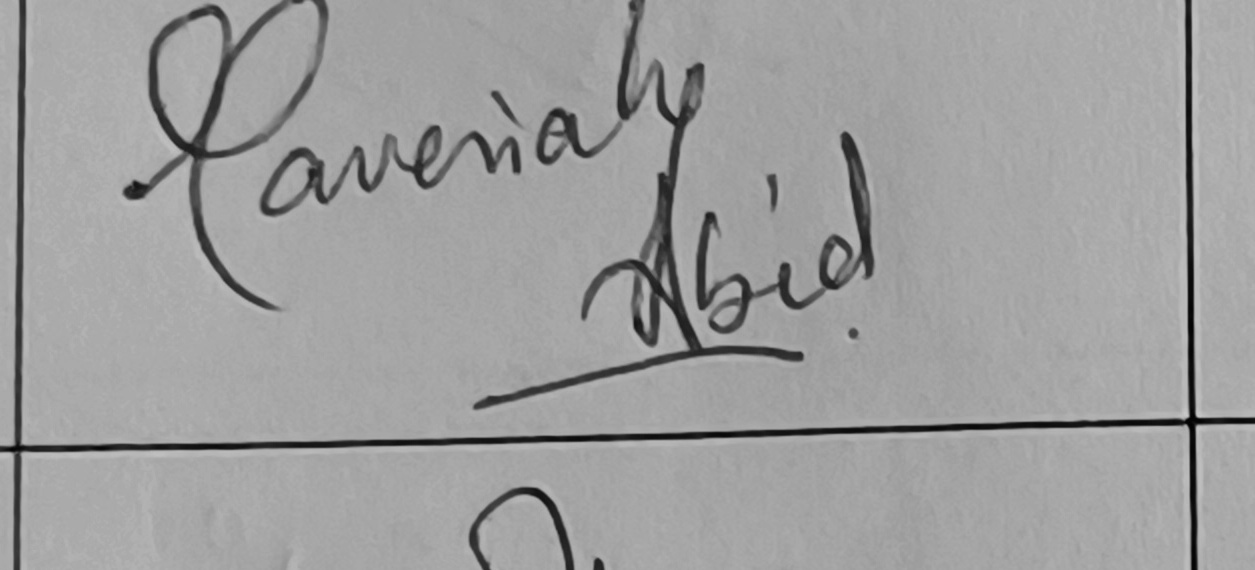 Javeriah
Abid